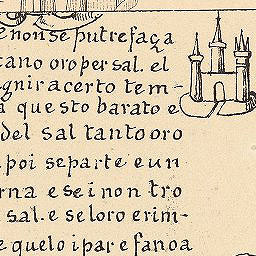 e non se putrefaça
cano oro per sal. el
gnir a certo tem-
a questo barato e
del sal tanto oro
poi se parte e un
rna e se i non tro
sal. e se loro erim-
e quelo i par e fano a